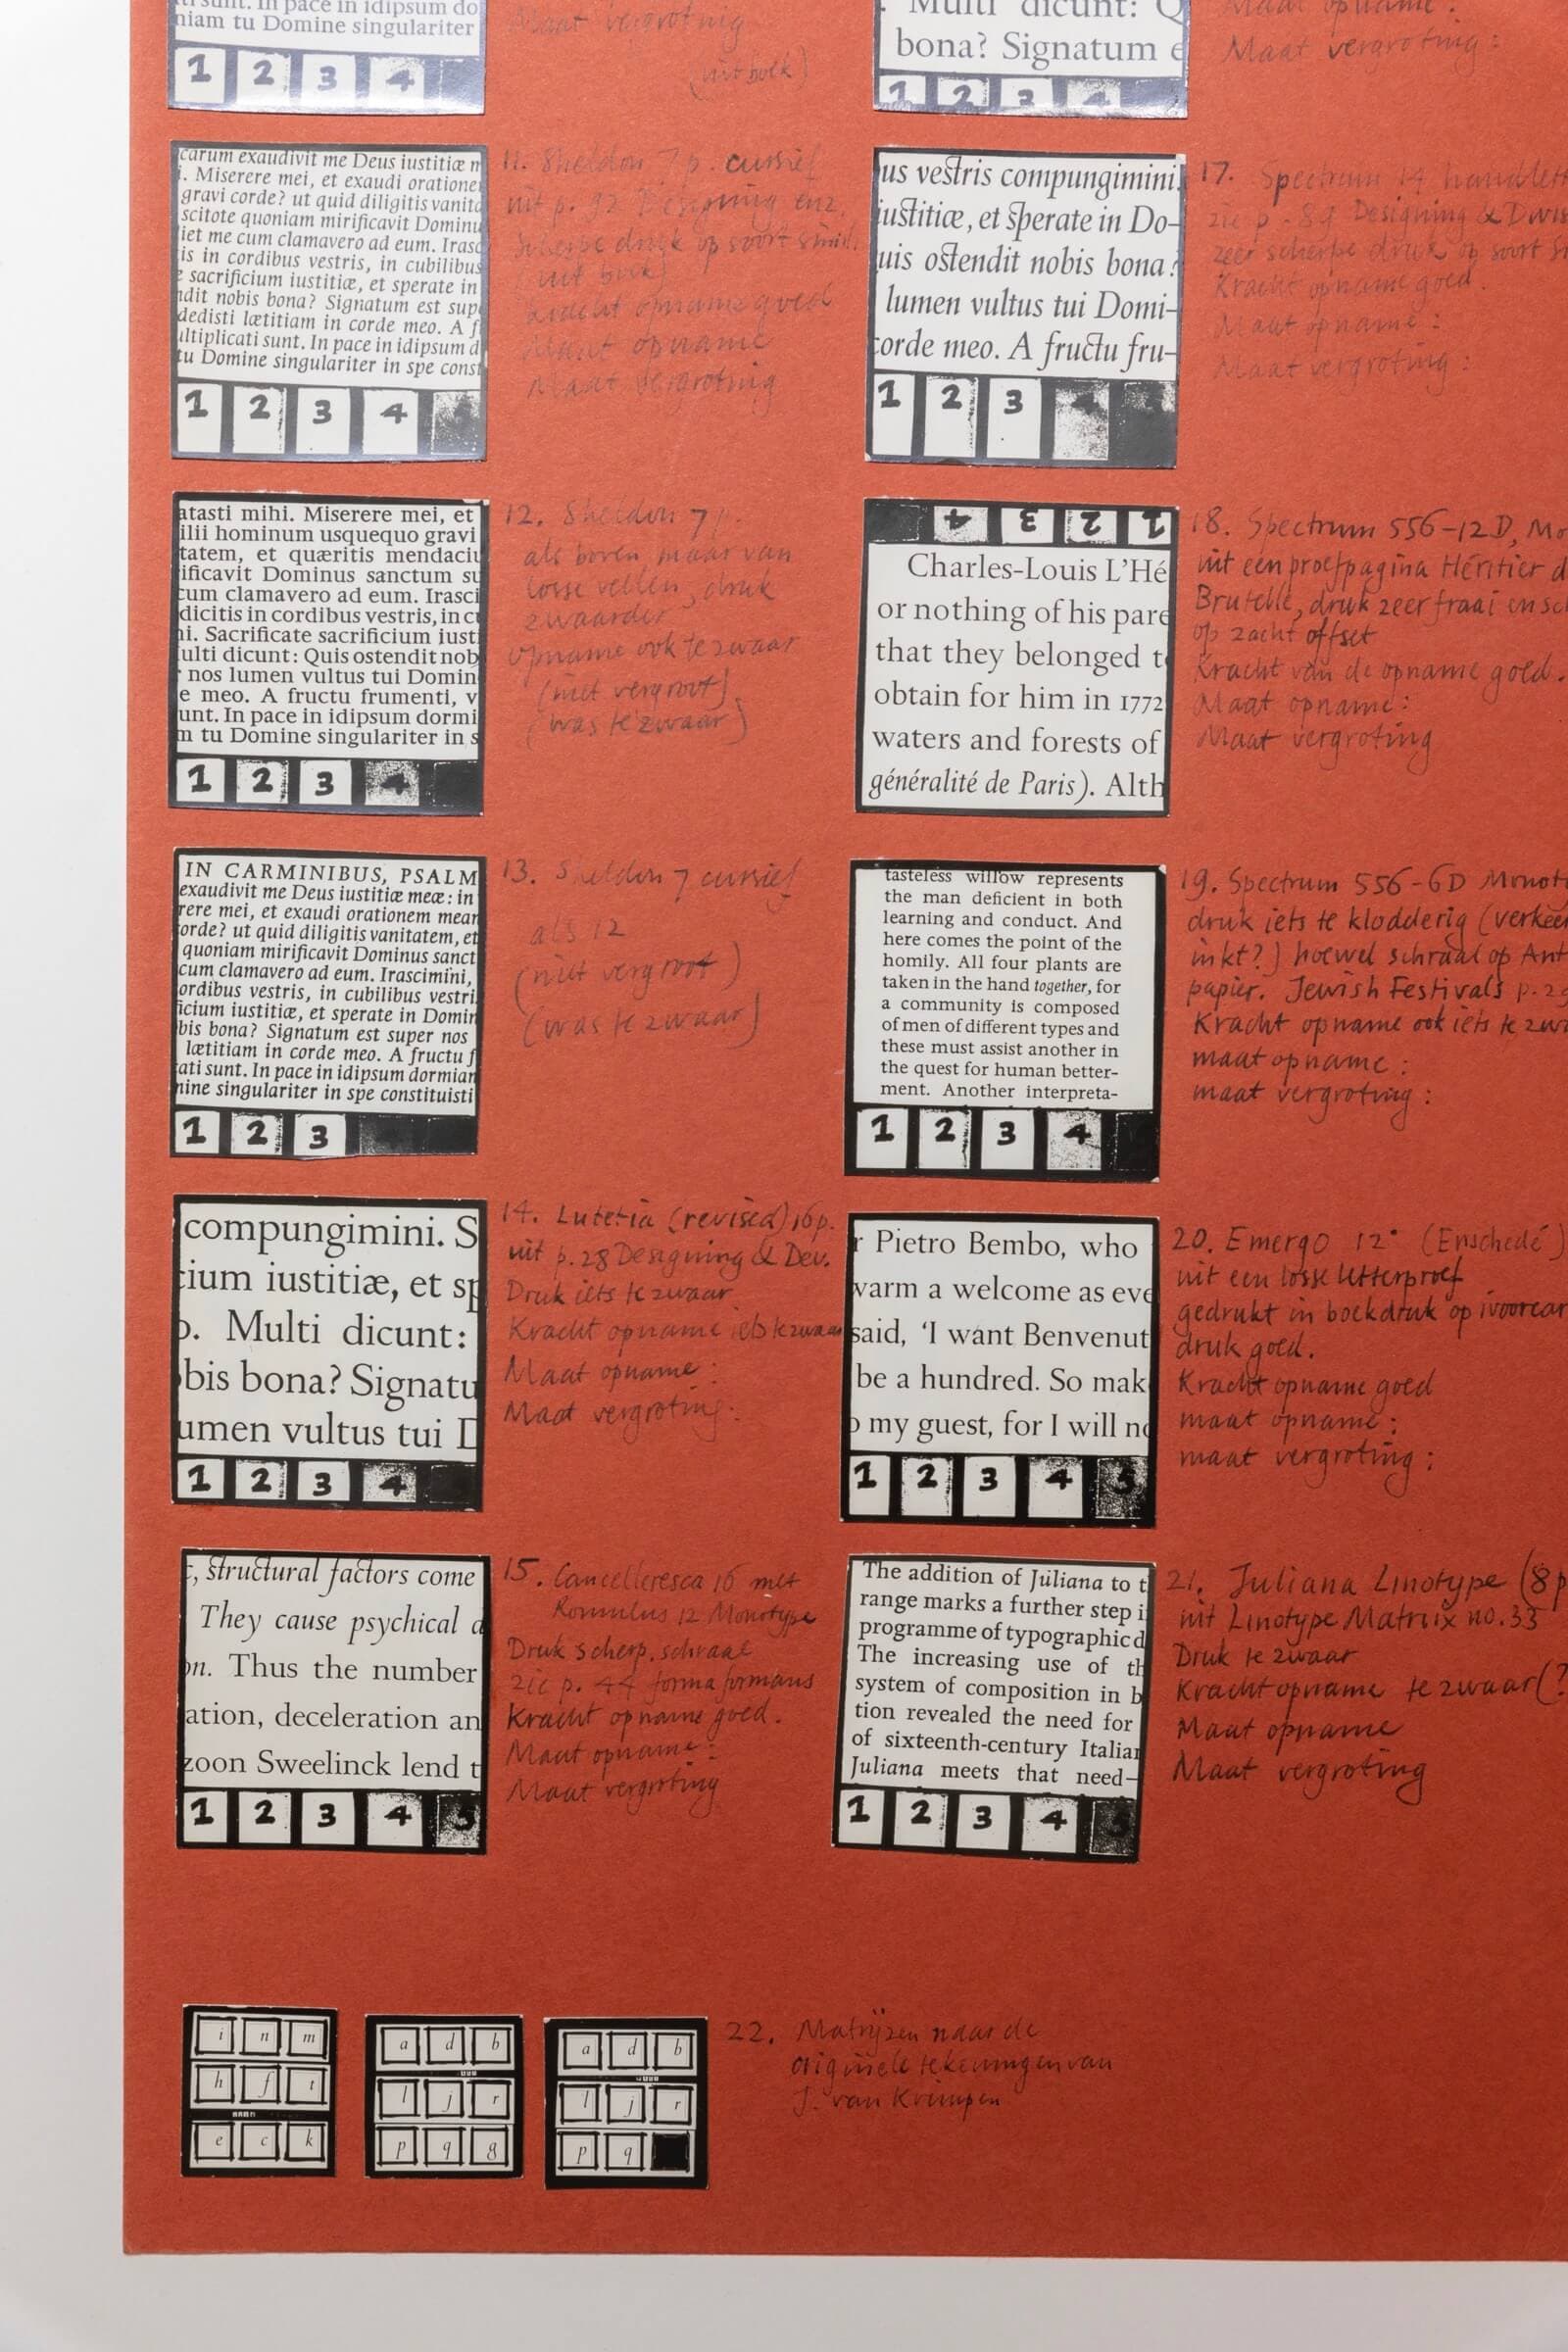 niam tu Domine singulariter
1 2 3 4
Maat vergroting
(uit boek)
carum exaudivit me Deus iustitiæ m
i. Miserere mei, et exaudi oratione
gravi corde? ut quid diligitis vanita
scitote quoniam mirificavit Dominu
iet me cum clamavero ad eum. Irasc
is in cordibus vestris, in cubilibus
e sacrificium iustitiæ, et sperate in
ndit nobis bona? Signatum est sup
dedisti lætitiam in corde meo. A f
ultiplicati sunt. In pace in idipsum d
tu Domine singulariter in spe const
1 2 3 4
11. Sheldon 7 p. cursief
uit p. 92 Designing enz.
Scherpe druk op soort
(uit boek)
Kracht opname goed
Maat opname
Maat vergroting
atasti mihi. Miserere mei, et
ilii hominum usquequo gravi
tatem, et quæritis mendaciu
ificavit Dominus sanctum su
cum clamavero ad eum. Irasci
dicitis in cordibus vestris, in cu
ni. Sacrificate sacrificium iusti
ulti dicunt: Quis ostendit nob
nos lumen vultus tui Domin
e meo. A fructu frumenti, v
unt. In pace in idipsum dormi
m tu Domine singulariter in s
1 2 3 4
12. Sheldon 7 p.
als boven maar van
losse vellen, druk
zwaarder
opname ook te zwaar
(niet vergroot)
(was te zwaar)
IN CARMINIBUS, PSALM
exaudivit me Deus iustitiæ meæ: in
rere mei, et exaudi orationem mean
orde? ut quid diligitis vanitatem, et
quoniam mirificavit Dominus sanct
cum clamavero ad eum. Irascimini,
ordibus vestris, in cubilibus vestri
ficium iustitiæ, et sperate in Domin
bis bona? Signatum est super nos
lætitiam in corde meo. A fructu f
ati sunt. In pace in idipsum dormian
nine singulariter in spe constituisti
1 2 3
13. Sheldon 7 cursief
als 12
(niet vergroot)
(was te zwaar)
compungimini. S
cium iustitiæ, et sp
o. Multi dicunt:
obis bona? Signatu
umen vultus tui D
1 2 3 4
14. Lutetia (revised) 16 p.
uit p. 28 Designing & Dev.
Druk iets te zwaar
Kracht opname iets te zwaar
Maat opname:
Maat vergroting:
, structural factors come
They cause psychical a
on. Thus the number
ation, deceleration an
zoon Sweelinck lend t
1 2 3 4 5
15. Cancelleresca 16 met
Romulus 12 Monotype
Druk scherp, schraal
zie p. 44 forma formans
Kracht opname goed.
Maat opname:
Maat vergroting
Multi dicunt: Q
bona? Signatum e
1 2 3 4
Maat opname:
Maat vergroting:
us vestris compungimini.
iustitiæ, et sperate in Do-
uis ostendit nobis bona?
lumen vultus tui Domi-
corde meo. A fructu fru-
1 2 3 4
17. Spectrum 14 handlett
zie p. 89 Designing & Dwi
zeer scherpe druk op soort
Kracht opname goed.
Maat opname:
Maat vergroting:
1 2 3 4
Charles-Louis L’Hé
or nothing of his pare
that they belonged t
obtain for him in 1772
waters and forests of
généralité de Paris). Alth
18. Spectrum 556-12D, Mo
uit een proefpagina Héritier d
Brutelle, druk zeer fraai en sc
op zacht offset
Kracht van de opname goed.
Maat opname:
Maat vergroting
tasteless willow represents
the man deficient in both
learning and conduct. And
here comes the point of the
homily. All four plants are
taken in the hand together, for
a community is composed
of men of different types and
these must assist another in
the quest for human better-
ment. Another interpreta-
1 2 3 4
19. Spectrum 556-6D Monot
druk iets te klodderig (verkee
inkt?) hoewel schraal op Ant
papier. Jewish Festivals p. 2
Kracht opname ook iets te zw
maat opname:
maat vergroting:
r Pietro Bembo, who
varm a welcome as eve
said, ‘I want Benvenut
be a hundred. So mak
o my guest, for I will no
1 2 3 4 5
20. Emergo 12° (Enschedé)
uit een losse letterproef
gedrukt in boekdruk op ivoorcar
druk goed.
Kracht opname goed
maat opname:
maat vergroting:
The addition of Juliana to t
range marks a further step i
programme of typographic d
The increasing use of th
system of composition in b
tion revealed the need for
of sixteenth-century Italian
Juliana meets that need—
1 2 3 4 5
21. Juliana Linotype (8 p
uit Linotype Matrix no. 33
Druk te zwaar
Kracht opname te zwaar (?
Maat opname
Maat vergroting
i n m
h f t
e c k
a d b
l j r
p q g
a d b
l j r
p q
22. Matrijzen naar de
originele tekeningen van
J. van Krimpen